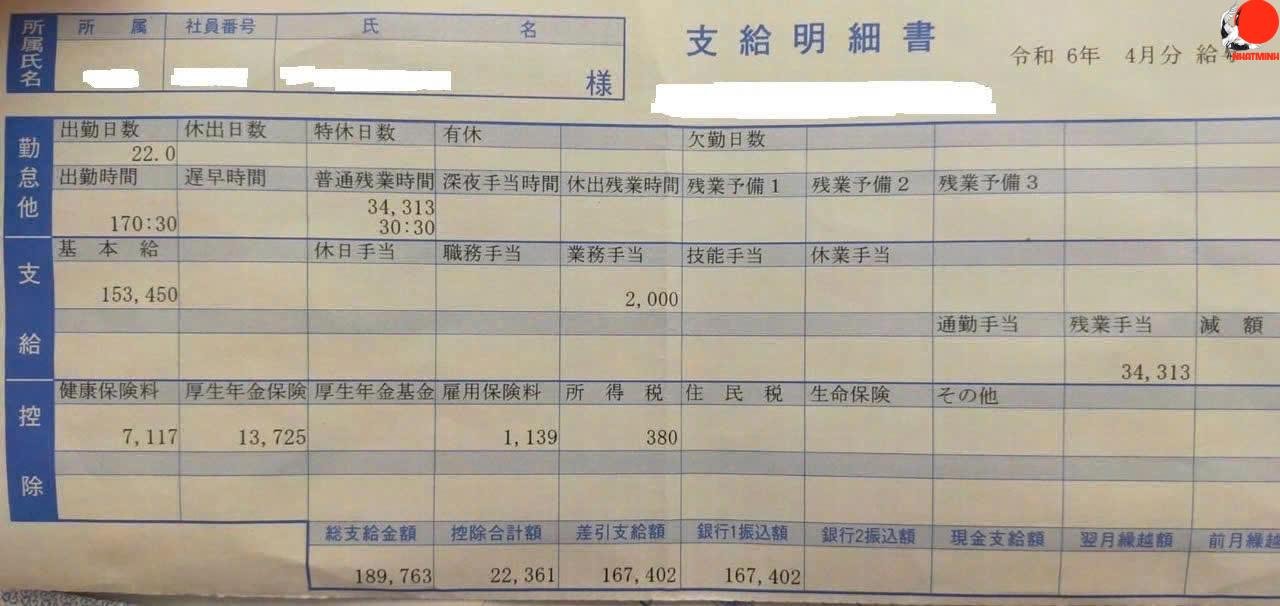 所属氏名
所 属 社員番号 氏 名
様
支給明細書
令和 6年 4月分 給
NHATMINH
勤怠他
出勤日数 休出日数 特休日数 有休 欠勤日数
22.0
出勤時間 遅早時間 普通残業時間 深夜手当時間 休出残業時間 残業予備1 残業予備2 残業予備3
34,313
170:30 30:30
支給
基本給 休日手当 職務手当 業務手当 技能手当 休業手当
153,450 2,000
通勤手当 残業手当 減額
34,313
控除
健康保険料 厚生年金保険 厚生年金基金 雇用保険料 所得税 住民税 生命保険 その他
7,117 13,725 1,139 380
総支給金額 控除合計額 差引支給額 銀行1振込額 銀行2振込額 現金支給額 翌月繰越額 前月繰越
189,763 22,361 167,402 167,402